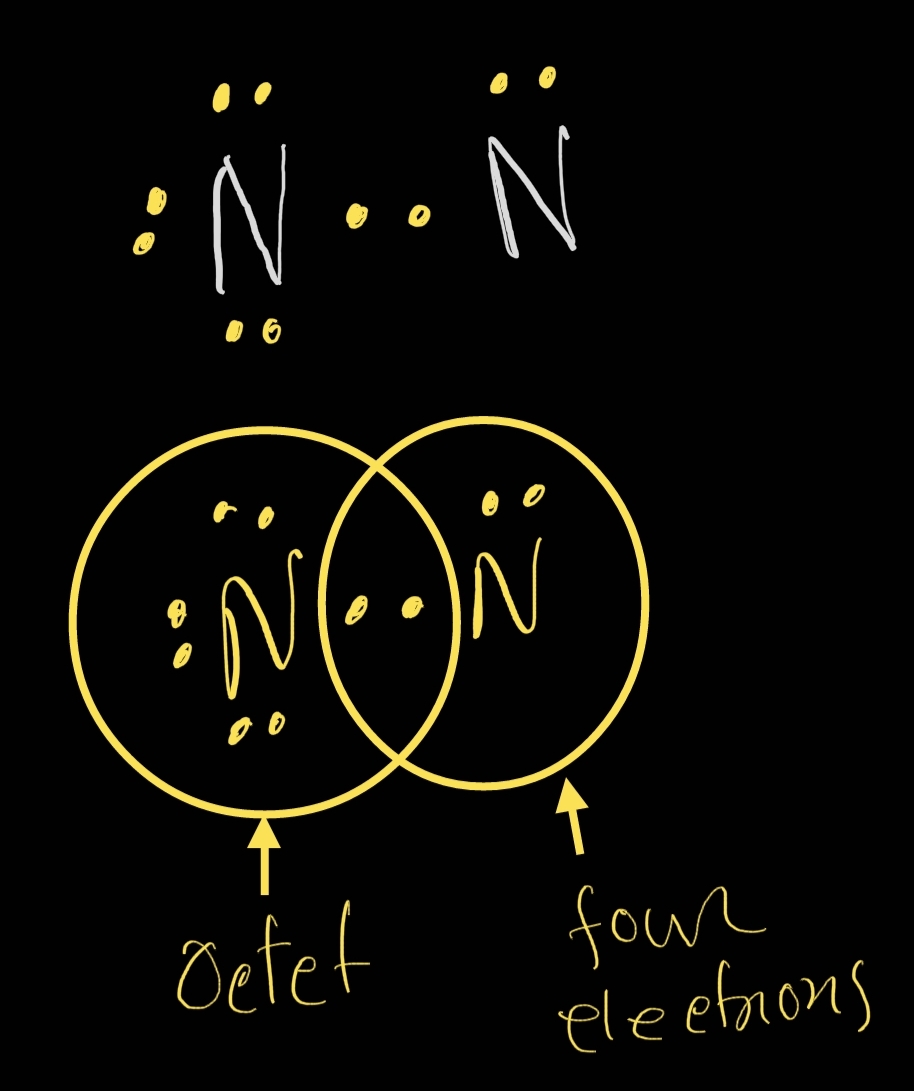 N N
N N
Octet
four
electrons